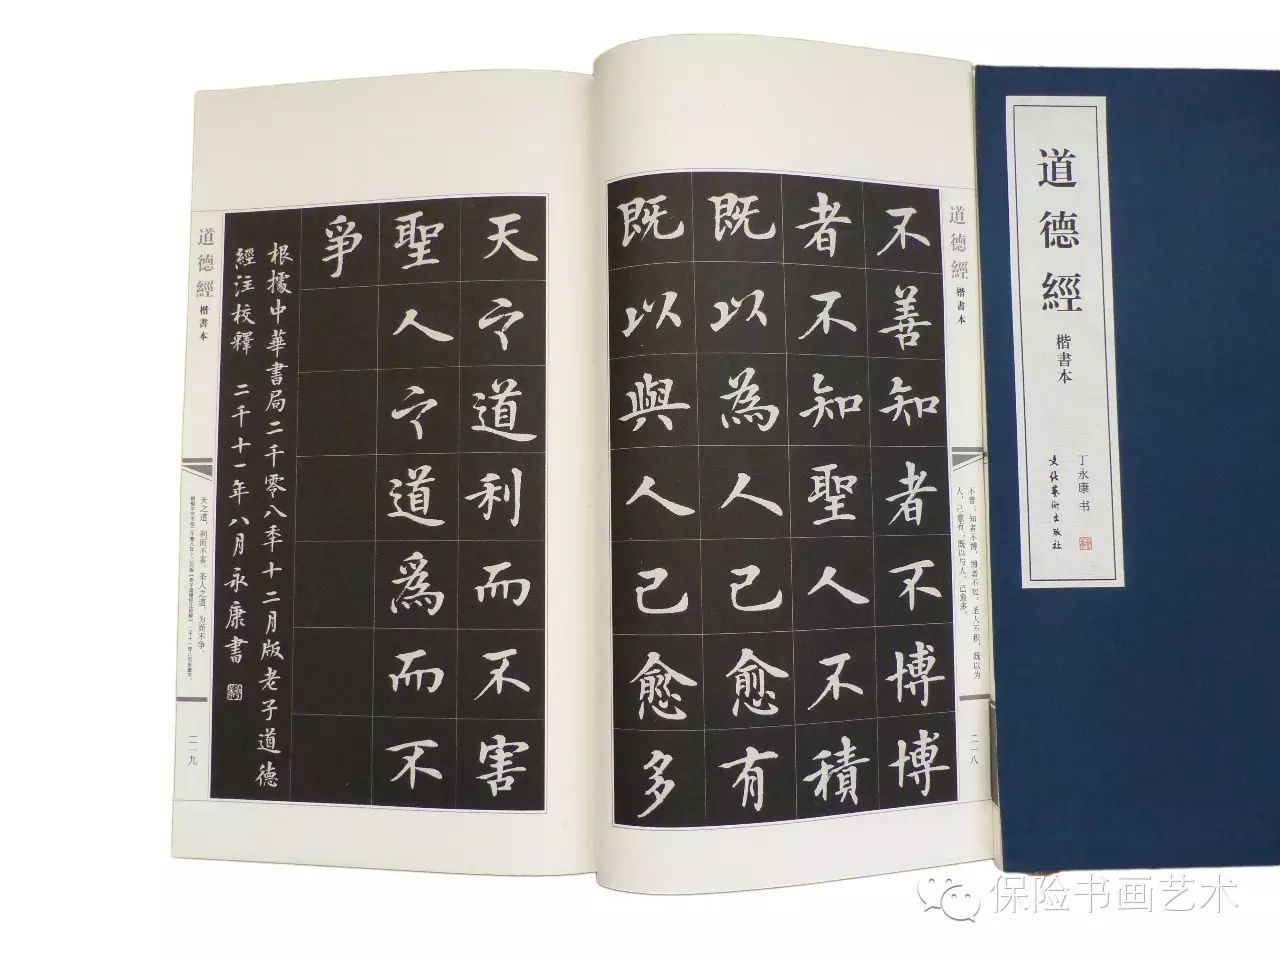 道德經
楷書本
丁永康 书
文化藝術出版社
道德經
楷書本
不善知者不博博
者不知聖人不積
既以為人己愈有
既以與人己愈多
不善；知者不博，博者不知。圣人不积，既以为
人，己愈有；既以与人，己愈多。
二一八
天之道利而不害
聖人之道為而不
爭
根據中華書局二千零八年十二月版老子道德
經注校釋 二千十一年八月永康書
道德經
楷書本
天之道，利而不害。圣人之道，为而不争。
二一九
保险书画艺术